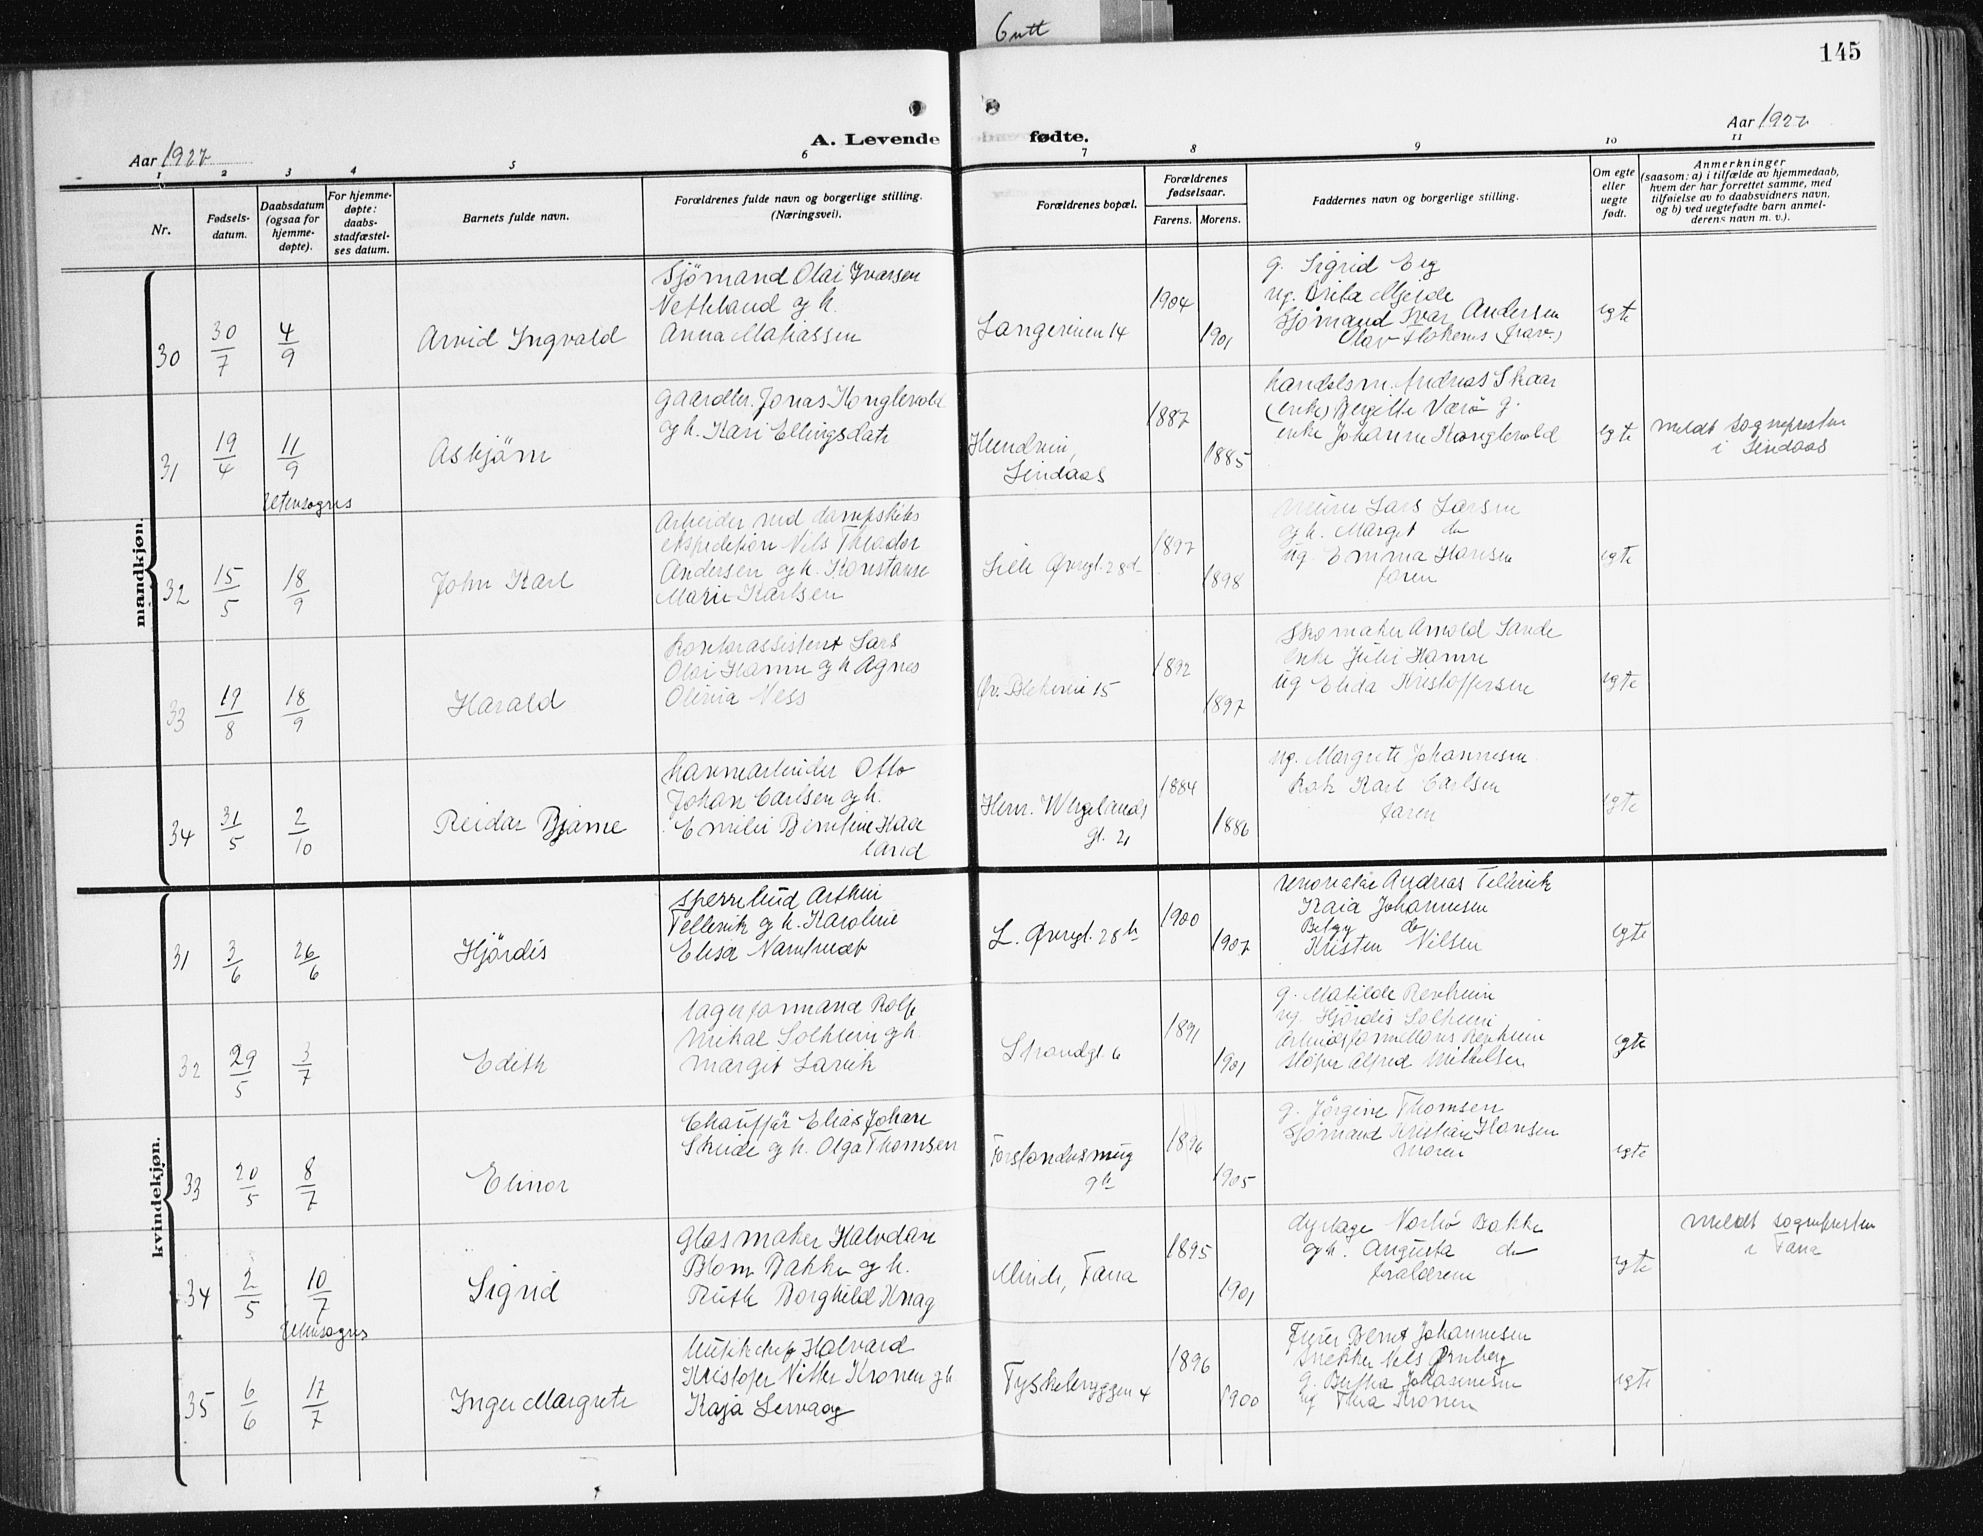 Gutt
145
Aar 1927
A. Levende fødte.
Aar 1927
1 2 3 4 5 6 7 8 9 10 11
Nr.
Fødsels-
datum.
Daabsdatum
(ogsaa for
hjemme-
døpte).
For hjemme-
døpte:
daabs-
stadfæstel-
ses datum.
Barnets fulde navn.
Forældrenes fulde navn og borgerlige stilling.
(Næringsvei).
Forældrenes bopæl.
Forældrenes
fødselsaar.
Farens. Morens.
Faddernes navn og borgerlige stilling.
Om egte
eller
uegte
født.
Anmerkninger
(saasom: a) i tilfælde av hjemmedaab,
hvem der har forrettet samme, med
tilføielse av to daabsvidners navn,
og b) ved uegtefødte barn anmel-
derens navn m. v.).
mandkjøn.
30
30/7
4/9
Arvid Ingvald
Sjømand Olai Ivarsen
Netteland og h.
Anna Matiassen
Langeveien 14
1904
1901
g. Sigrid Eeg
ug. Brita Mjelde
Sjømand Ivar Andersen
Olav (frav.)
egte
31
19/4
11/9
Utensogns
Asbjørn
gaardbr. Jonas Konglevold
og h. Kari Ellingsdatr
Hundvin,
Lindaas
1887
1885
handelsm. Andreas Skaar
(enke) Bergitte Værø g.
enke Johanne Konglevold
egte
meldt sognepresten
i Lindaas
32
15/5
18/9
John Karl
Arbeider ved dampskibs
ekspedition Nils Theodor
Andersen og h. Konstanse
Marie Karlsen
Lille Øvregt. 28d
1897
1898
murer Lars Larsen
og h. Margit do
ug Emma Hansen
faren
egte
33
19/8
18/9
Harald
Kontorassistent Lars
Olai Hamre og h Agnes
Olivia Ness
Øv. Blekevei 15
1892
1897
Skomaker Arnold Sande
enke Julie Hamre
ug Elida Kristoffersen
egte
34
31/5
2/10
Reidar Bjarne
havnearbeider Otto
Johan Carlsen og h.
Emilie Berntine Haa
land
Henr. Wergelands
gt. 21
1884
1886
ug. Margrete Johannesen
Kok Karl Carlsen
faren
egte
kvindekjøn.
31
3/6
26/6
Hjørdis
Tellevik og h. Karoline
L. Øvregt. 28b
1900
1907
Andreas Tellevik
Kaia Johannesen
Betzy do
Kristen Nilsen
egte
32
29/5
3/7
Edith
lagerformand Rolf
Mikal Solheim og h.
Margit Larvik
Strandgt 6
1891
1901
g. Matilde Renheim
ug Hjørdis Solheim
støper Alfred Mikkelsen
egte
33
20/5
8/7
Elinor
Chauffør Elias Johan
Skeide og h. Olga Thomsen
Forstandersmug
9b
1896
1905
g. Jørgine Thomsen
sjømand Kristian Hansen
moren
egte
34
2/5
10/7
Utensogns
Sigrid
Glasmaker Halvdan
Blom Bakke og h.
Ruth Borghild Knag
Minde, Fana
1895
1901
dyrlæge Bakke
og h. Augusta do
forældrene
egte
meldt sognepresten
i Fana
35
6/6
17/7
Inger Margrete
Halvard
Kristofer Nitter Kronen og h.
Kaja Servaag
Tyskebryggen 4
1896
1900
Bernt Johannesen
snekker Nils Ørnberg
g. Bertha Johannesen
ug Thea Kronen
egte